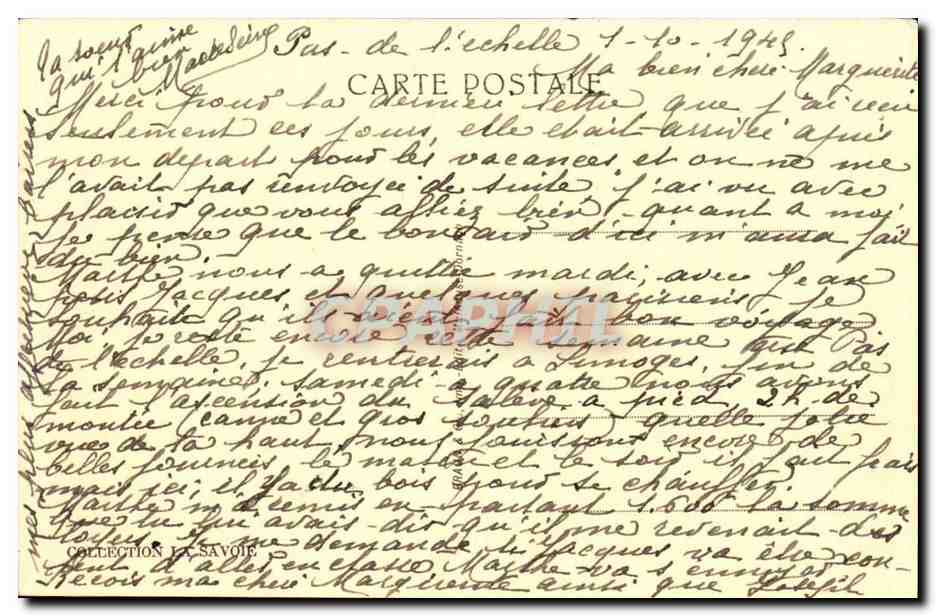 Pas-de l'echelle 1-10-1945
CARTE POSTALE
Ma bien chère Marguerite
Merci pour ta dernière lettre que j'ai reçu
seulement ces jours, elle était arrivée après
mon départ pour les vacances, et on ne me
l'avait pas renvoyée de suite, j'ai vu avec
plaisir que vous alliez bien, quant a moi
je pense que le bon air d'ici m'aura fait
du bien.
Marthe nous a quitté mardi, avec Jean
puis Jacques et quelques parisiens, je
souhaite qu'ils aient fait bon voyage
Moi je reste encore cette semaine au Pas
de l'échelle, je rentrerais a Limoges, fin de
la semaine. Samedi a quatre nous avons
fait l'ascension du Salève a pied, 2h de
montée (canne et gros souliers) quelle jolie
vue de la haut, nous jouissons encore de
belles journées, le matin et le soir il fait frais
mais ici, il y a du bois pour se chauffer.
Marthe m'a remis en partant 1.600 la somme
que tu avais dit qu'il me revenait des
loyers. Je me demande si Jacques va être con-
COLLECTION LA SAVOIE
tent d'aller en classe Marthe va s'ennuyer
Reçois ma chère Marguerite ainsi que Joseph
mes plus affectueux baisers
Ta soeur
qui t'aime
bien
Madeleine
CPARHIL